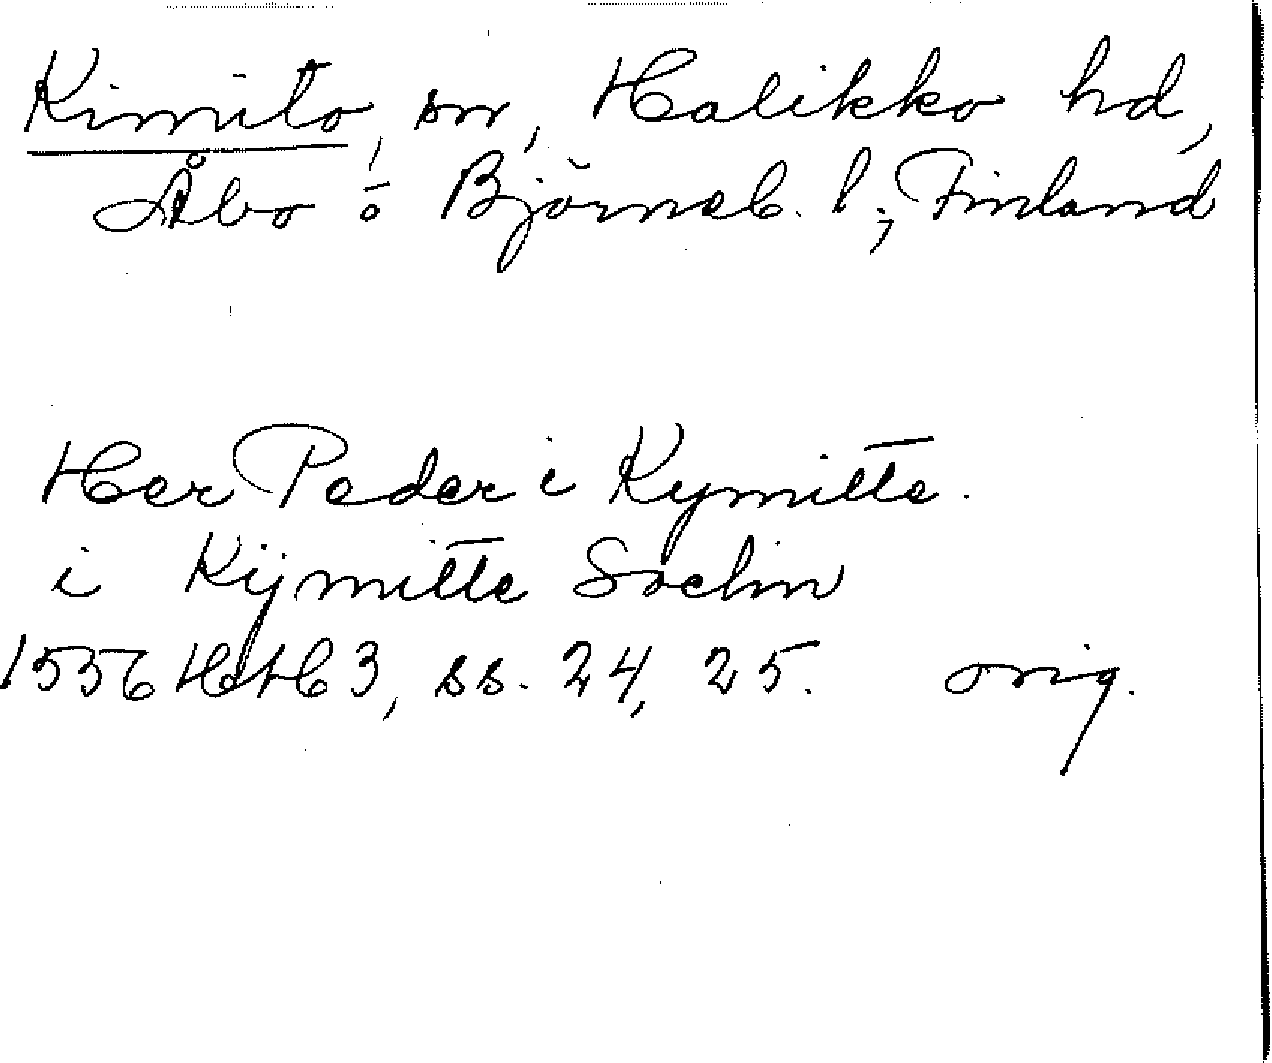 Kimito, sn, Halikko hd,
Åbo o Björneb. l., Finland
Her Peder i Kymitte.
i Kijmitte Sochn
1556 HH 3, ss. 24, 25. orig.